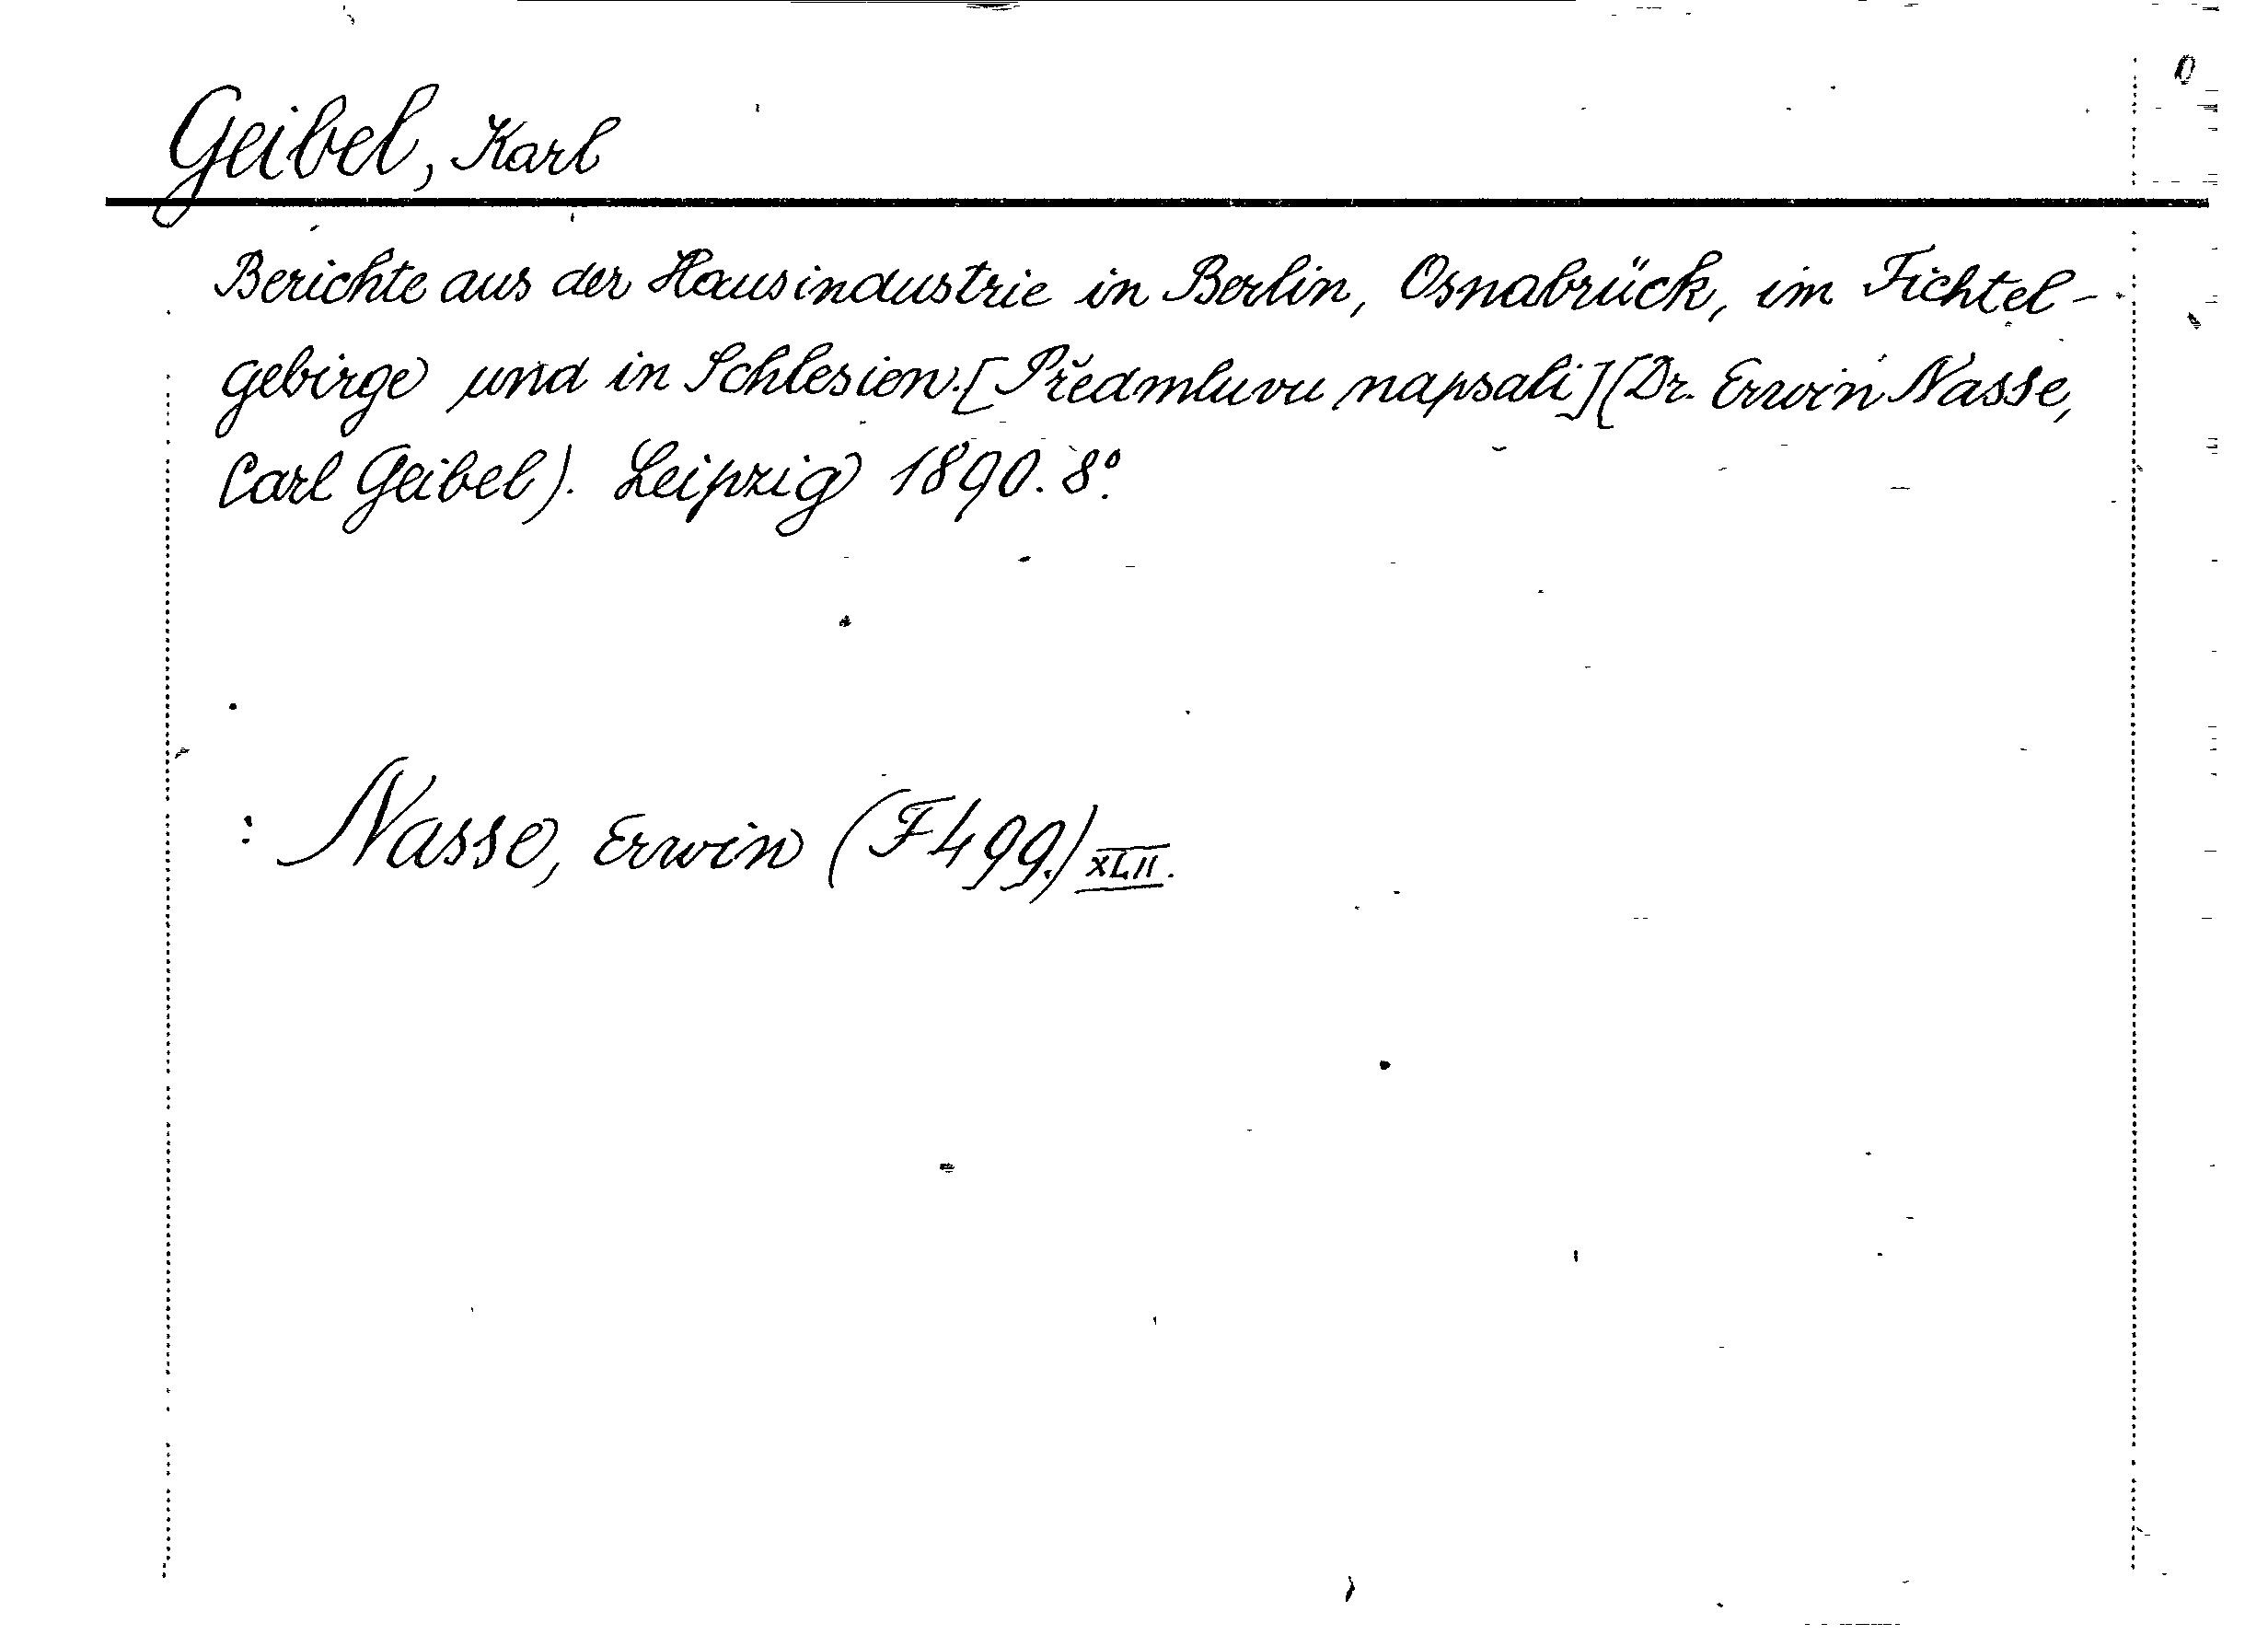 Geibel, Karl
Berichte aus der Hausindustrie in Berlin, Osnabrück, im Fichtel-
gebirge und in Schlesien. [Předmluvu napsali] (Dr. Erwin Nasse,
Carl Geibel). Leipzig 1890. 8°.
: Nasse, Erwin (F 499.) XLII.